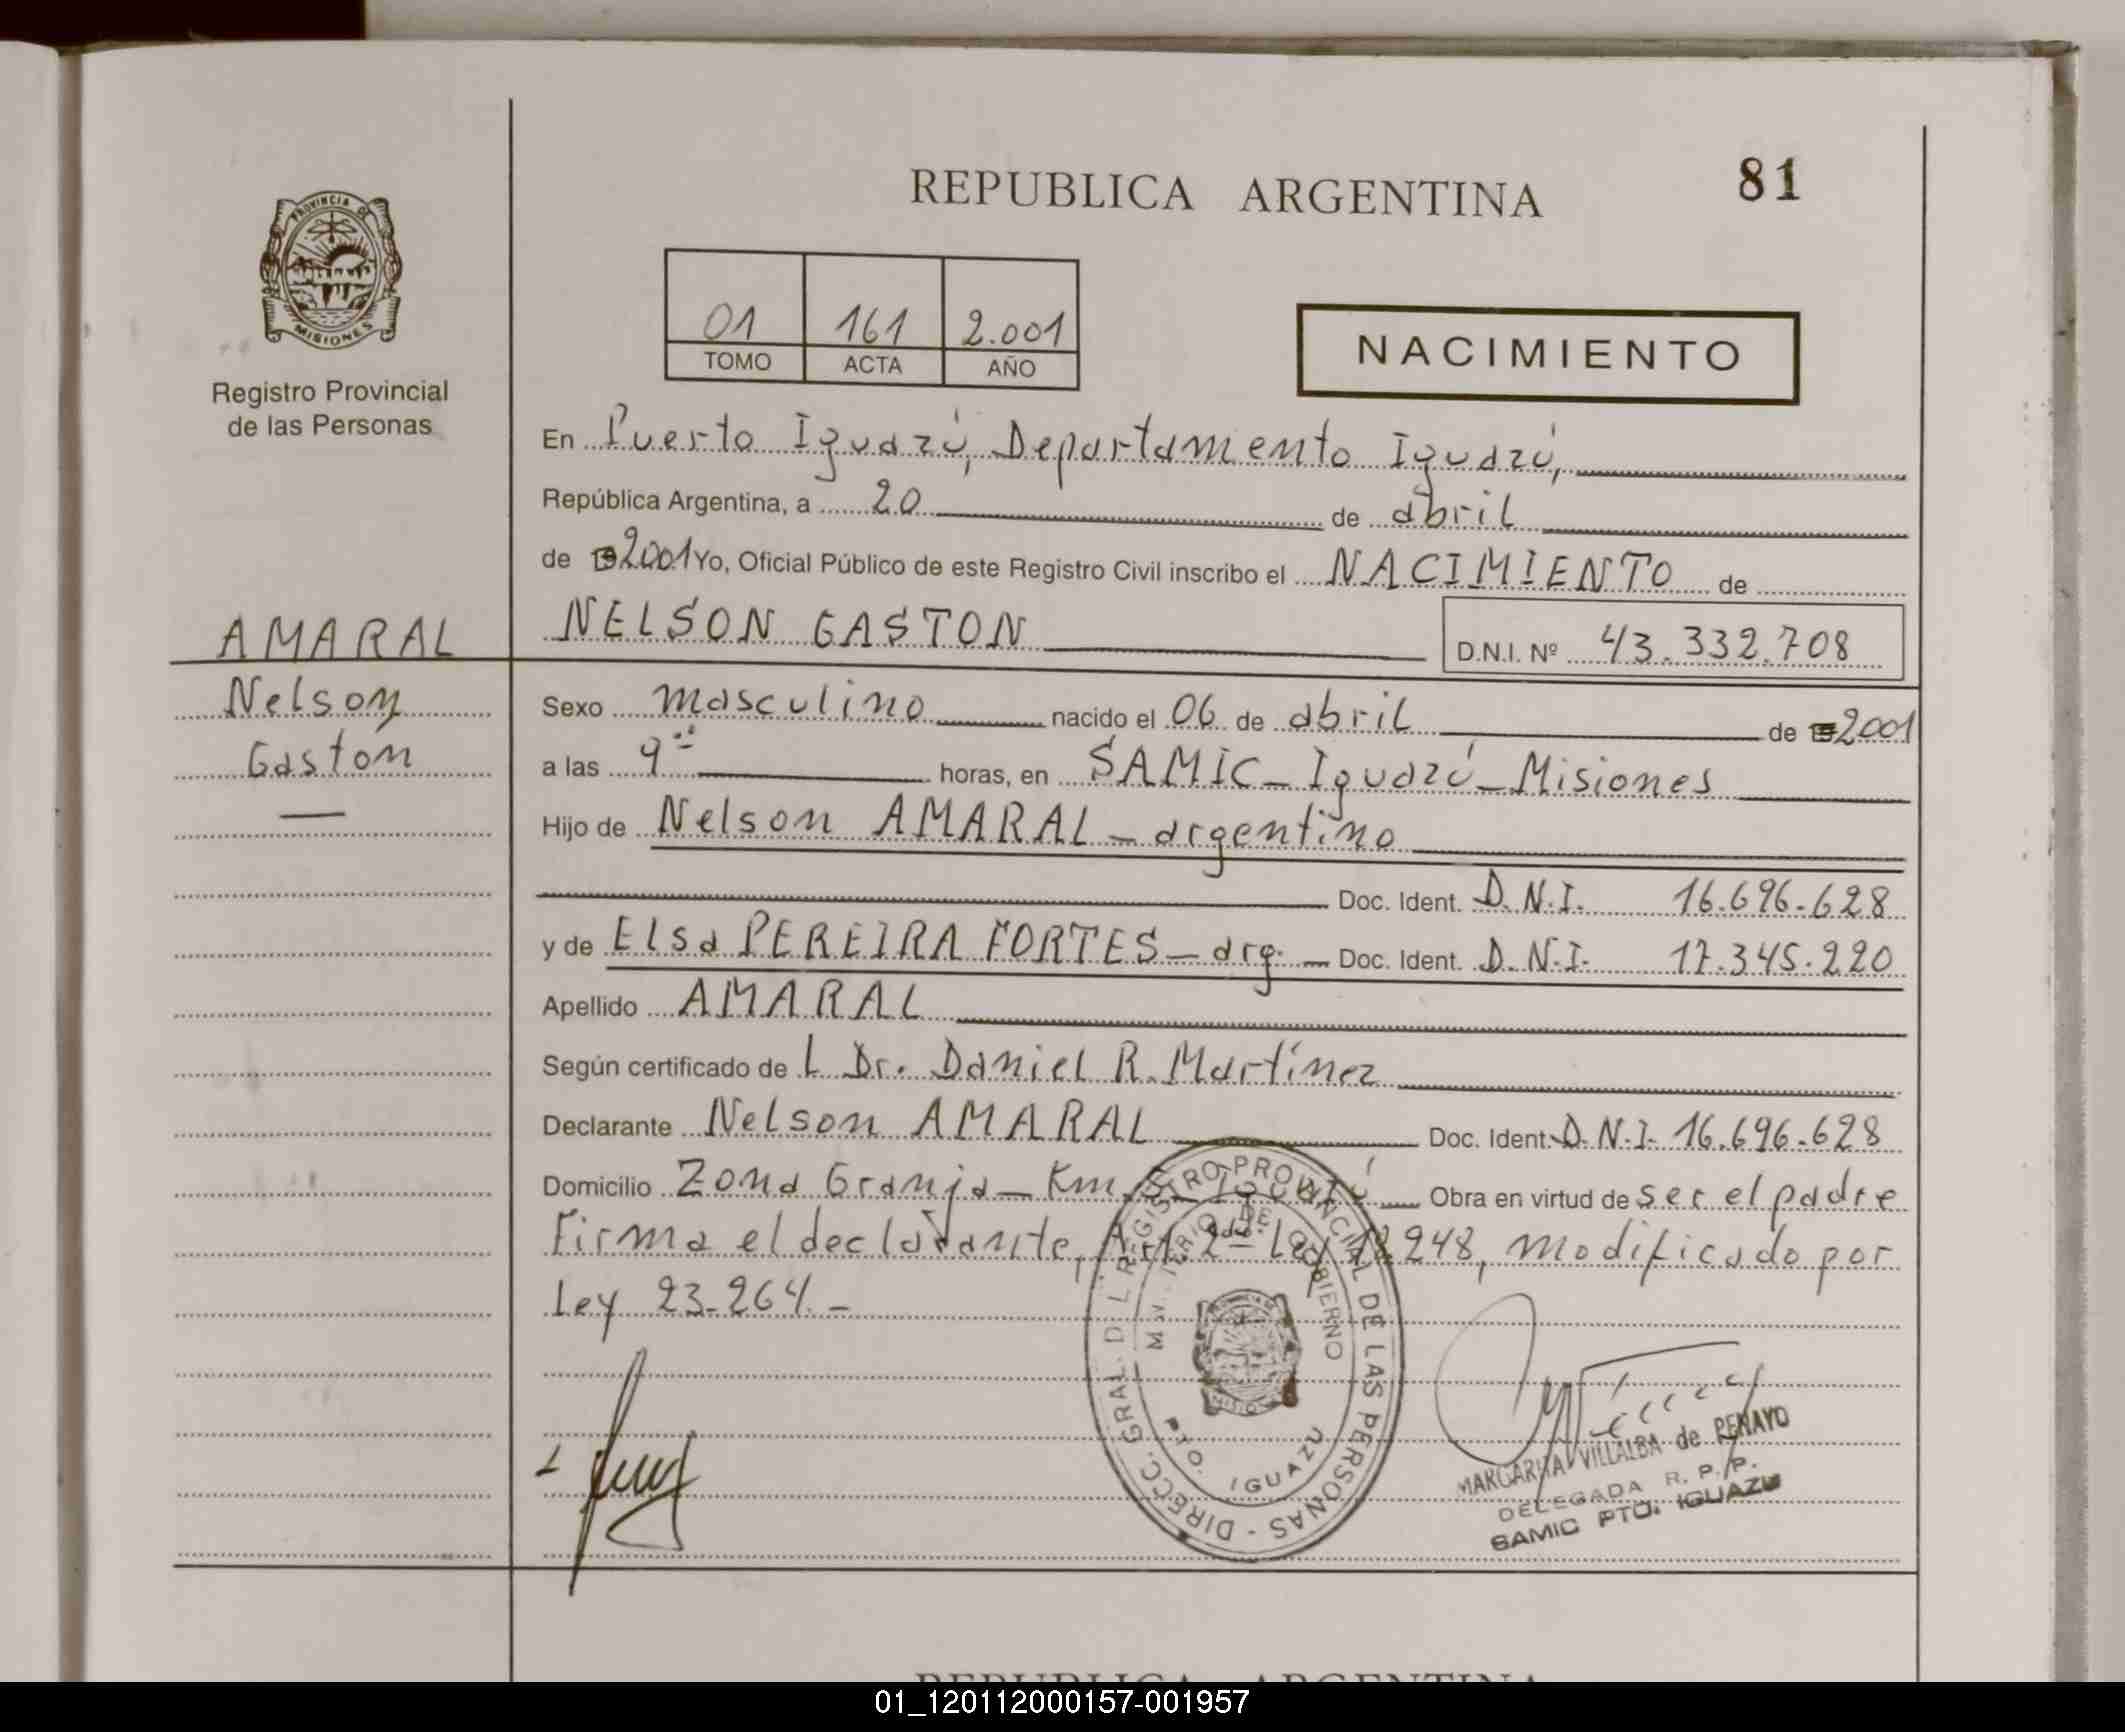 REPUBLICA ARGENTINA
81
PROVINCIA DE
MISIONES
Registro Provincial
de las Personas
01 161 2.001
TOMO ACTA AÑO
NACIMIENTO
En Puerto Iguazú, Departamento Iguazú,
República Argentina, a 20 de abril
de 2001 Yo, Oficial Público de este Registro Civil inscribo el NACIMIENTO de
NELSON GASTON
D.N.I. Nº 43.332.708
AMARAL
Nelson
Gastón
Sexo masculino nacido el 06 de abril de 2001
a las 9 horas, en SAMIC - Iguazú - Misiones
Hijo de Nelson AMARAL - argentino
Doc. Ident. D.N.I. 16.696.628
y de Elsa PEREIRA FORTES - arg. - Doc. Ident. D.N.I. 17.345.220
Apellido AMARAL
Según certificado de L Dr. Daniel R. Martínez
Declarante Nelson AMARAL Doc. Ident. D.N.I. 16.696.628
Domicilio Zona Granja - Km. Iguazú Obra en virtud de ser el padre
Firma el declarante, Art. 2 Ley 18.248, modificado por
Ley 23.264. -
DIRECC. GRAL. DEL REGISTRO PROVINCIAL DE LAS PERSONAS -
MINISTERIO DE GOBIERNO
PTO. IGUAZU
MARGARITA VILLALBA de PENAYO
DELEGADA R. P. P.
SAMIC PTO. IGUAZU
REPUBLICA ARGENTINA
01_120112000157-001957